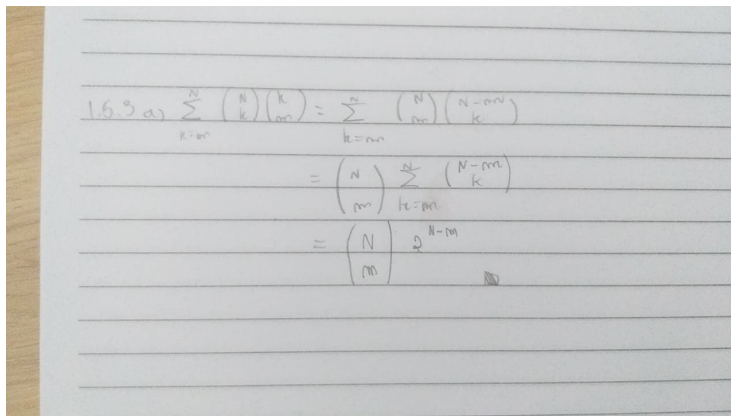 1.5.9 a) $\sum_{k=m}^{N} \binom{N}{k} \binom{k}{m} = \sum_{k=m}^{N} \binom{N}{m} \binom{N-m}{k}$
$= \binom{N}{m} \sum_{k=m}^{N} \binom{N-m}{k}$
$= \binom{N}{m} 2^{N-m}$